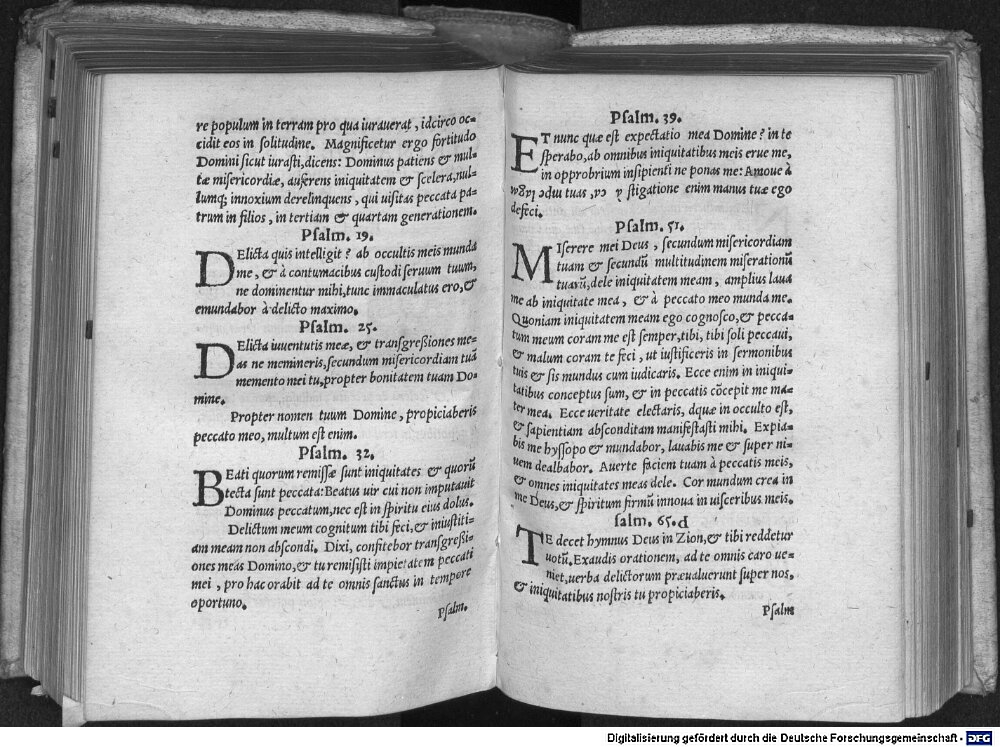 re populum in terram pro qua iurauerat, idcirco oc-
cidit eos in solitudine. Magnificetur ergo fortitudo
Domini sicut iurasti, dicens: Dominus patiens & mul-
tæ misericordiæ, auferens iniquitatem & scelera, nul-
lumq; innoxium derelinquens, qui uisitas peccata pa-
trum in filios, in tertiam & quartam generationem.
Psalm. 19.
DElicta quis intelligit? ab occultis meis munda
me, & à contumacibus custodi seruum tuum,
ne dominentur mihi, tunc immaculatus ero, &
emundabor à delicto maximo.
Psalm. 25.
DElicta iuuentutis meæ, & transgreßiones me-
as ne memineris, secundum misericordiam tuã
memento mei tu, propter bonitatem tuam Do-
mine.
Propter nomen tuum Domine, propiciaberis
peccato meo, multum est enim.
Psalm. 32.
BEati quorum remissæ sunt iniquitates & quorũ
tecta sunt peccata: Beatus uir cui non imputauit
Dominus peccatum, nec est in spiritu eius dolus.
Delictum meum cognitum tibi feci, & iniustiti-
am meam non abscondi. Dixi, confitebor transgreßi-
ones meas Domino, & tu remisisti impietatem peccati
mei, pro hac orabit ad te omnis sanctus in tempore
oportuno.
Psalm.
Psalm. 39.
ET nunc quæ est expectatio mea Domine? in te
sperabo, ab omnibus iniquitatibus meis erue me,
in opprobrium insipienti ne ponas me: Amoue à
tuas stigatione enim manus tuæ ego
defeci.
Psalm. 51.
MIserere mei Deus, secundum misericordiam
tuam & secundũ multitudinem miserationũ
tuarũ, dele iniquitatem meam, amplius laua
me ab iniquitate mea, & à peccato meo munda me.
Quoniam iniquitatem meam ego cognosco, & pecca-
tum meum coram me est semper, tibi, tibi soli peccaui,
& malum coram te feci, ut iustificeris in sermonibus
tuis & sis mundus cum iudicaris. Ecce enim in iniqui-
tatibus conceptus sum, & in peccatis cõcepit me ma-
ter mea. Ecce ueritate electaris, dquæ in occulto est,
& sapientiam absconditam manifestasti mihi. Expia-
bis me hyssopo & mundabor, lauabis me & super ni-
uem dealbabor. Auerte faciem tuam à peccatis meis,
& omnes iniquitates meas dele. Cor mundum crea in
me Deus, & spiritum firmũ innoua in uisceribus meis.
salm. 65.d
TE decet hymnus Deus in Zion, & tibi reddetur
uotũ. Exaudis orationem, ad te omnis caro ue-
niet, uerba delictorum præualuerunt super nos,
& iniquitatibus nostris tu propiciaberis.
Psalm
Digitalisierung gefördert durch die Deutsche Forschungsgemeinschaft - DFG